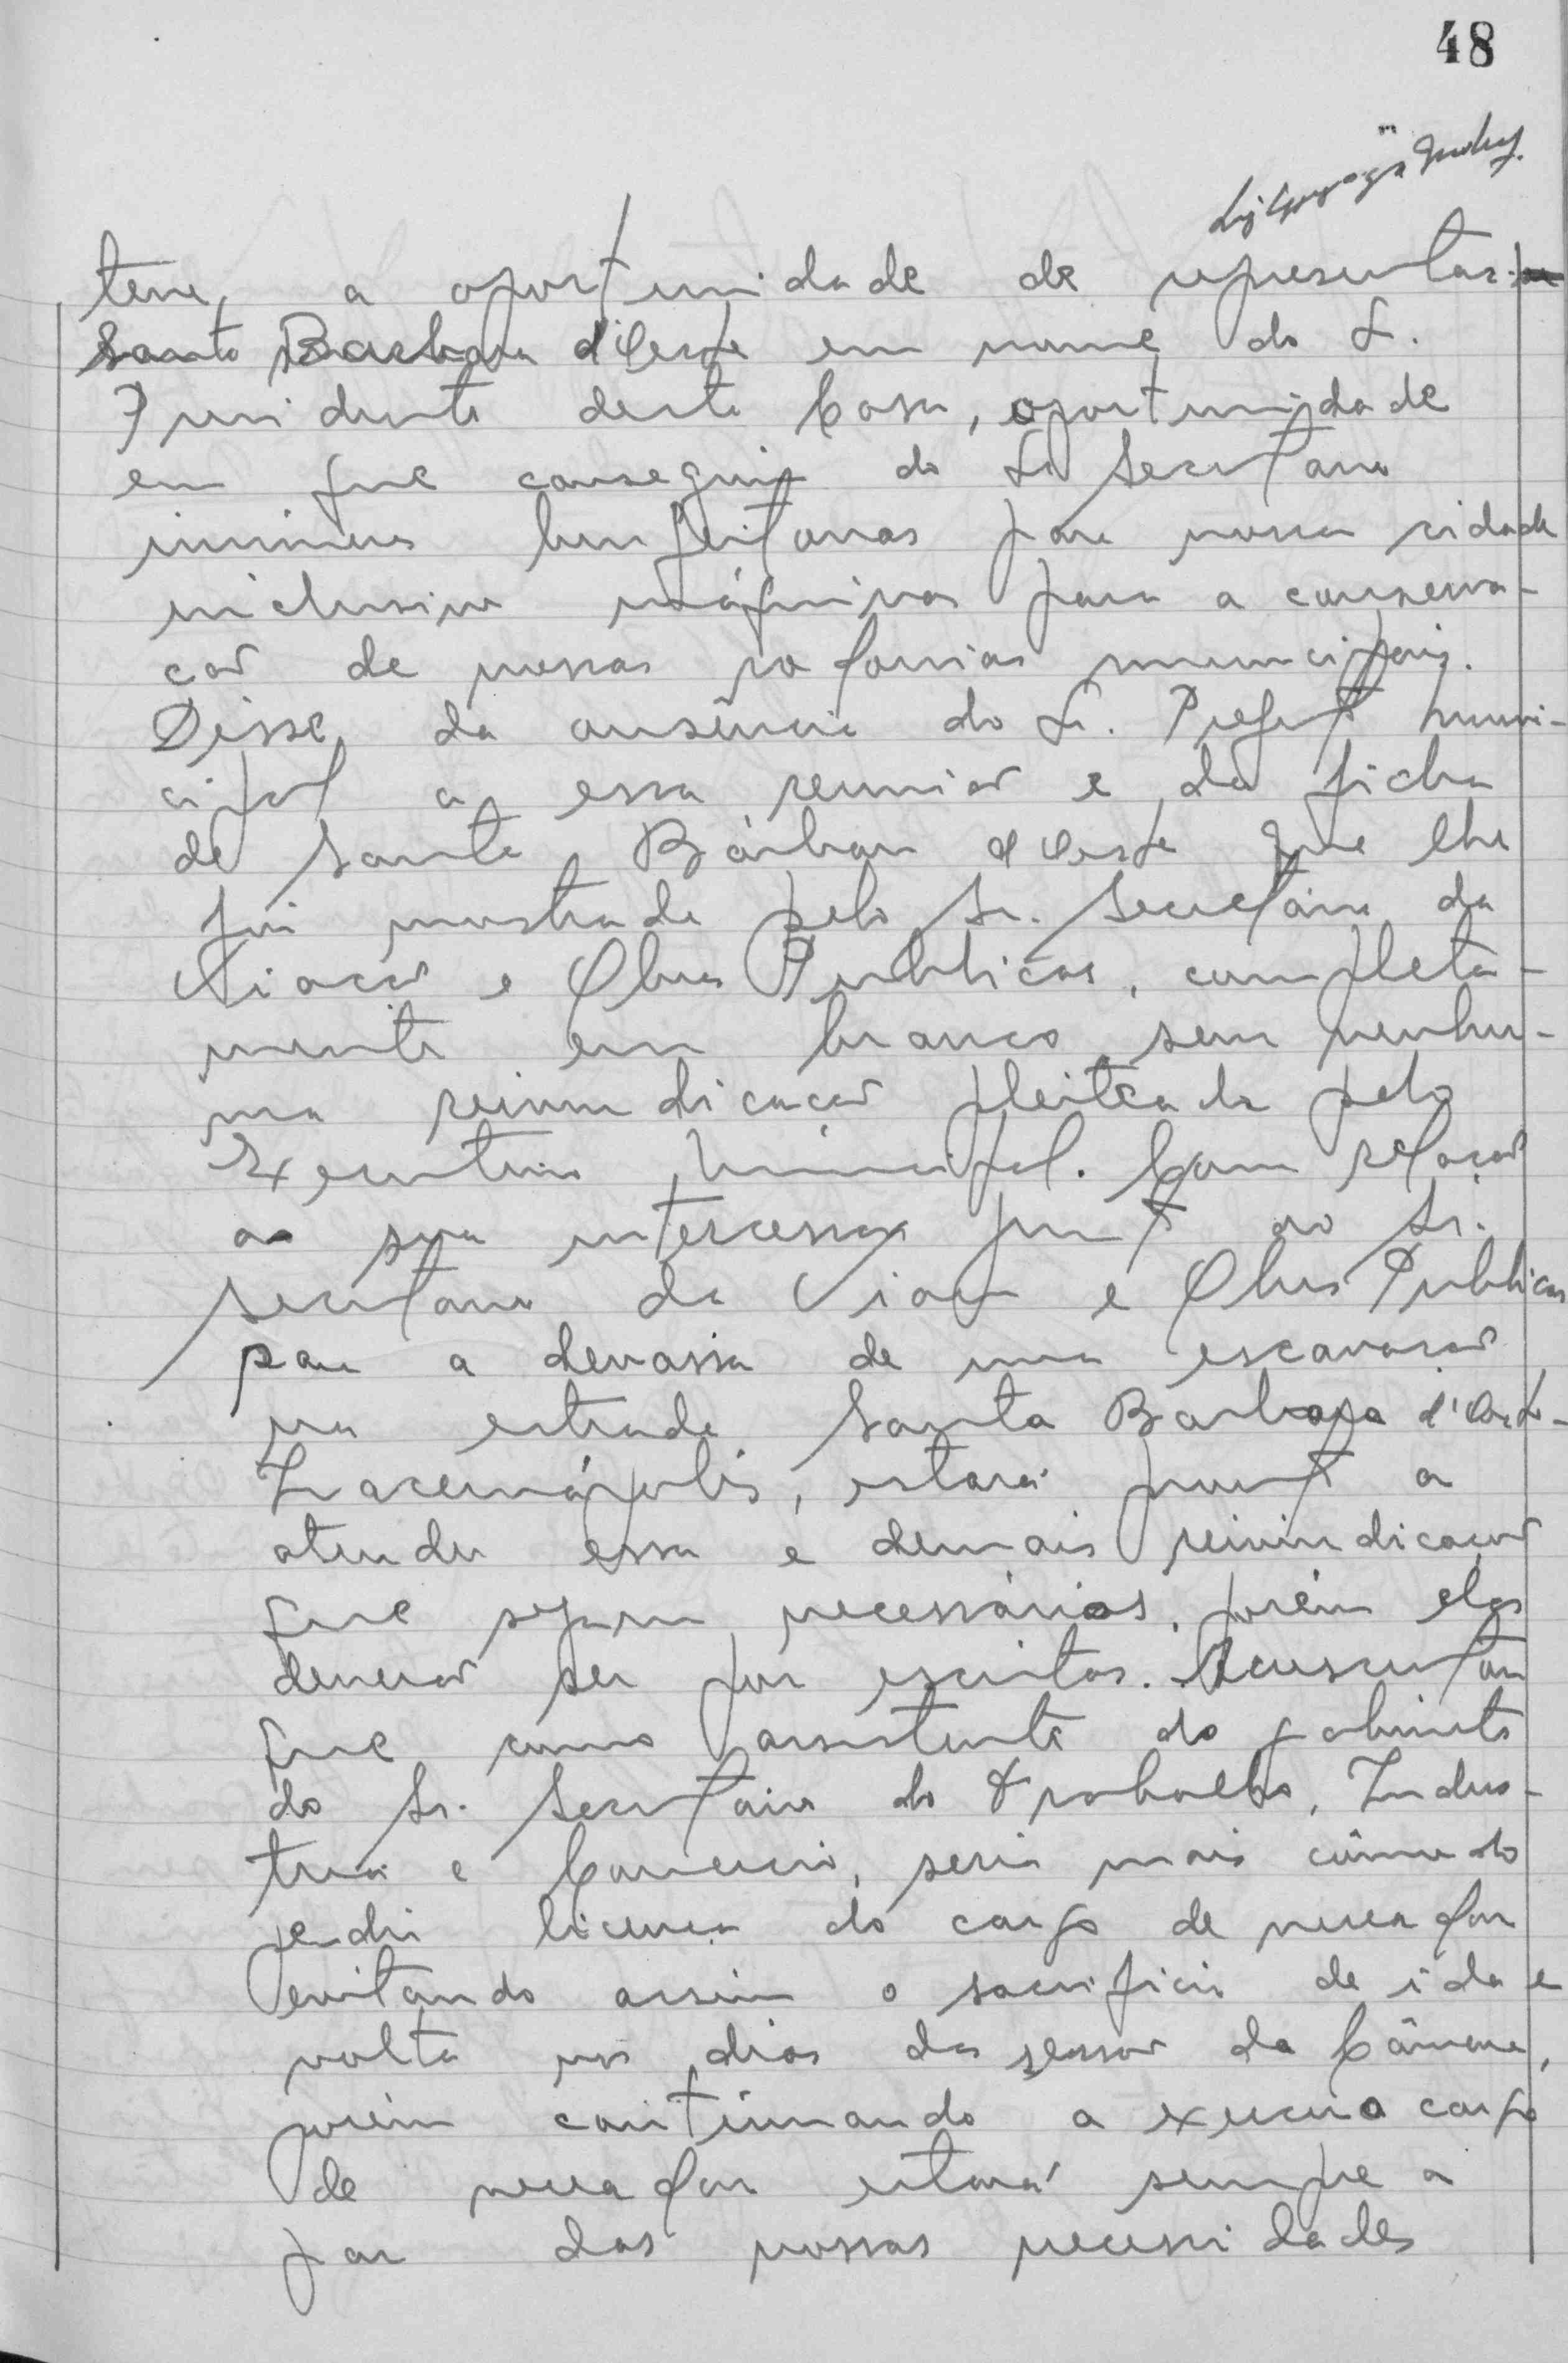 48
teve, a oportunidade de representar
Santa Barbara d'Oeste em nome do Sr.
Presidente desta Casa, oportunidade
em que conseguiu do Sr Secretario
inúmeras benfeitorias para nossa cidade
inclusive máquinas para a conserva-
ção de nossas rodovias municipais.
Disse, da ausência do Sr. Prefeito Muni-
cipal a essa reunião e da ficha
de Santa Bárbara d'Oeste que lhe
foi mostrada pelo Sr. Secretário da
Viação e Obras Publicas, completa-
mente em branco sem nenhu-
ma reivindicação pleiteada pelo
Executivo Municipal. Com relação
a sua intercessão junto ao Sr.
Secretario da Viação e Obras Publicas
para a devassa de uma escavação
na estrada Santa Barbara d'Oeste-
Iracemápolis, estará pronto a
atender essa e demais reivindicação
que sejam necessários, porém elas
deverão ser por escritas. Acrescentou
que como assistente do gabinete
do Sr. Secretario do Trabalho, Indus-
tria e Comercio, seria mais cômodo
pedir licença do cargo de vereador
evitando assim o sacrificio de ida e
volta nos dias da sessão da Câmara,
porém continuando a exercer o cargo
de vereador estará sempre a
par das nossas necessidades